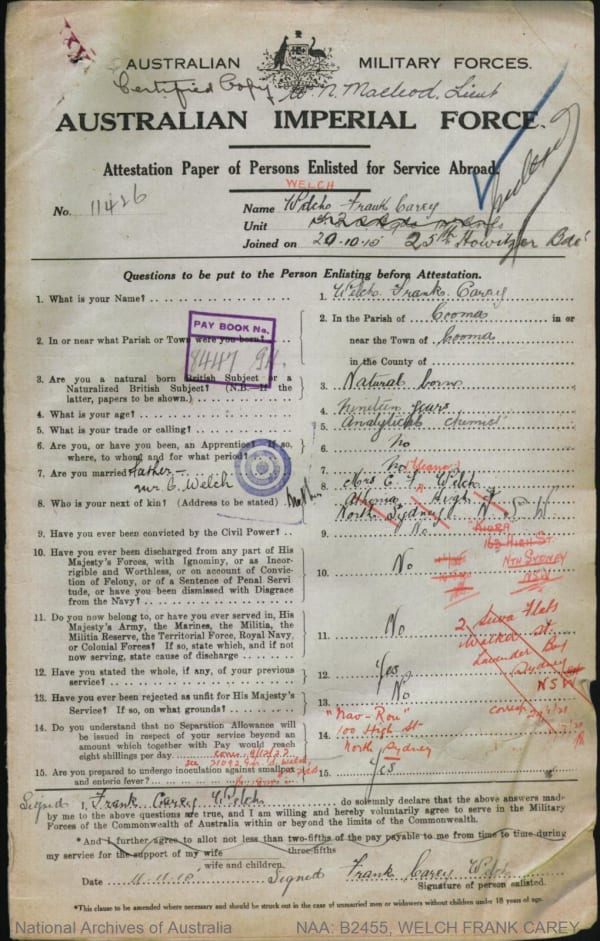 AUSTRALIAN MILITARY FORCES.
Certified Copy W N Macleod. Lieut
AUSTRALIAN IMPERIAL FORCE.
Attestation Paper of Persons Enlisted for Service Abroad.
WELCH
No. 11426
Name Welch Frank Carey
Unit
Joined on 20-10-15 25th Howitzer Bde
Questions to be put to the Person Enlisting before Attestation.
1. What is your Name?
1. Welch Frank Carey
PAY BOOK No.
2. In or near what Parish or Town were you born?
2. In the Parish of Cooma in or
near the Town of Cooma
in the County of
3. Are you a natural born British Subject or a
Naturalized British Subject? (N.B.—If the
latter, papers to be shown.)
3. Natural born
4. What is your age?
4. Nineteen years
5. What is your trade or calling?
5. Analytical chemist
6. Are you, or have you been, an Apprentice? If so,
where, to whom, and for what period?
6. No
7. Are you married?
7. No
Father —
Mr. C. Welch
8. Who is your next of kin? (Address to be stated)
Mother
8. Mrs E. Welch
(Eleanor)
Athoma High St
North Sydney N.S.W
KIORA
169 HIGH ST
NTH SYDNEY
NSW
9. Have you ever been convicted by the Civil Power?
9. No
10. Have you ever been discharged from any part of His
Majesty's Forces, with Ignominy, or as Incor-
rigible and Worthless, or on account of Convic-
tion of Felony, or of a Sentence of Penal Servi
tude, or have you been dismissed with Disgrace
from the Navy?
10. No
11. Do you now belong to, or have you ever served in, His
Majesty's Army, the Marines, the Militia, the
Militia Reserve, the Territorial Force, Royal Navy,
or Colonial Forces? If so, state which, and if not
now serving, state cause of discharge
11. No
2 Suva Flats
Walker St.
Lavender Bay
Sydney
NSW
12. Have you stated the whole, if any, of your previous
service?
12. Yes
13. Have you ever been rejected as unfit for His Majesty's
Service? If so, on what grounds?
13. No
14. Do you understand that no Separation Allowance will
be issued in respect of your service beyond an
amount which together with Pay would reach
eight shillings per day.
14.
"Nav-Rou"
100 High St
North Sydney
15. Are you prepared to undergo inoculation against smallpox
and enteric fever?
15. Yes
Signed I, Frank Carey Welch do solemnly declare that the above answers made
by me to the above questions are true, and I am willing and hereby voluntarily agree to serve in the Military
Forces of the Commonwealth of Australia within or beyond the limits of the Commonwealth.
*And I further agree to allot not less than two-fifths of the pay payable to me from time to time during
three-fifths
my service for the support of my wife
, wife and children.
Date 11.11.15 Signed Frank Carey Welch
Signature of person enlisted.
*This clause to be amended where necessary and should be struck out in the case of unmarried men or widowers without children under 18 years of age.
National Archives of Australia NAA: B2455, WELCH FRANK CAREY